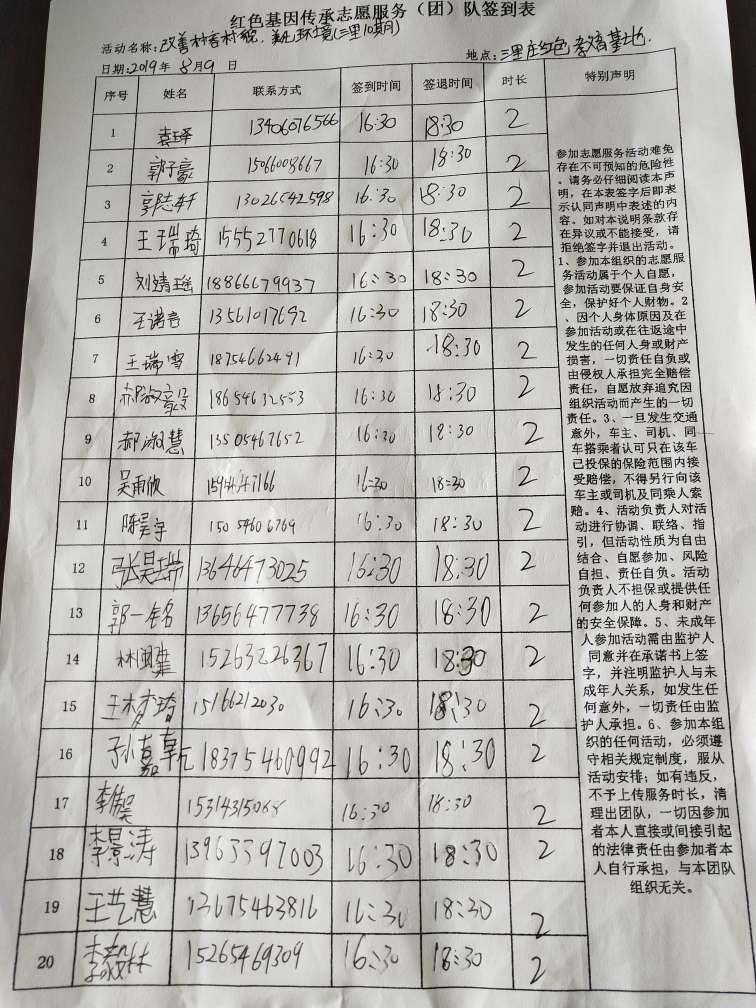 红色基因传承志愿服务（团）队签到表
活动名称：改善村容村貌，美化环境（三里10期）
日期：2019年8月9日 地点：三里庄红色教育基地
序号 姓名 联系方式 签到时间 签退时间 时长 特别声明
1 13406076566 16:30 18:30 2
2 郭子豪 15066008667 16:30 18:30 2
3 郭志轩 13026542598 16:30 18:30 2
4 王瑞琦 15552770618 16:30 18:30 2
5 刘婧瑶 18866679937 16:30 18:30 2
6 王诺言 13561017692 16:30 18:30 2
7 王瑞雪 18754662491 16:30 18:30 2
8 郝淑毅 16:30 18:30 2
9 郝淑慧 13505467652 16:30 18:30 2
10 吴雨欣 16:30 18:30 2
11 陈昊宇 15054606769 16:30 18:30 2
12 张昊瑞 13646473025 16:30 18:30 2
13 郭一铭 13656477738 16:30 18:30 2
14 16:30 18:30 2
15 王梦琦 15166212030 16:30 18:30 2
16 孙嘉航 18375460992 16:30 18:30 2
17 16:30 18:30 2
18 李景涛 13963397003 16:30 18:30 2
19 王艺慧 13675463816 16:30 18:30 2
20 15265469309 16:30 18:30 2
参加志愿服务活动难免
存在不可预知的危险性
。请务必仔细阅读本声
明，在本表签字后即表
示认同声明中表述的内
容。如对本说明条款存
在异议或不能接受，请
拒绝签字并退出活动。
1、参加本组织的志愿服
务活动属于个人自愿，
参加活动要保证自身安
全，保护好个人财物。2
、因个人身体原因及在
参加活动或在往返途中
发生的任何人身或财产
损害，一切责任自负或
由侵权人承担完全赔偿
责任，自愿放弃追究因
组织活动而产生的一切
责任。3、一旦发生交通
意外，车主、司机、同
车搭乘者认可只在该车
已投保的保险范围内接
受赔偿，不得另行向该
车主或司机及同乘人索
赔。4、活动负责人对活
动进行协调、联络、指
引，但活动性质为自由
结合、自愿参加、风险
自担、责任自负。活动
负责人不担保或提供任
何参加人的人身和财产
的安全保障。5、未成年
人参加活动需由监护人
同意并在承诺书上签
字，并注明监护人与未
成年人关系，如发生任
何意外，一切责任由监
护人承担。6、参加本组
织的任何活动，必须遵
守相关规定制度，服从
活动安排；如有违反，
不予上传服务时长，清
理出团队，一切因参加
者本人直接或间接引起
的法律责任由参加者本
人自行承担，与本团队
组织无关。